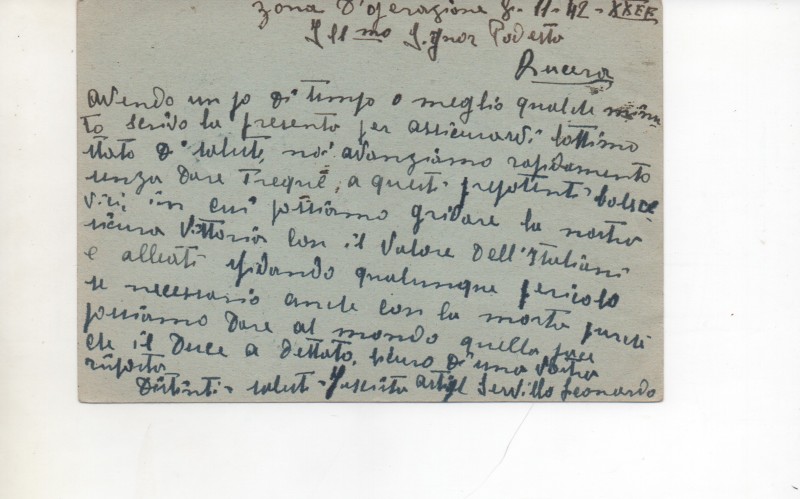 zona D'operazione 8-11-42-XXEE
Ill mo Signor Podesta
Lucera
avendo un po di tempo o meglio qualche minu
to scrivo la presente per assicurarvi lottimo
stato di salute, noi avanziamo rapidamente
senza dare Treque, a questi prepotenti bolsce
vici in cui possiamo gridare la nostra
sicura Vittoria con il valore Dell'Italiani
e alleati sfidando qualunque pericolo
se necessario anche con la morte purche
possiamo Dare al mondo quella pace
che il Duce a dettato, sicuro di una vostra
risposta
Distinti saluti Fascista Artigl Servillo Leonardo